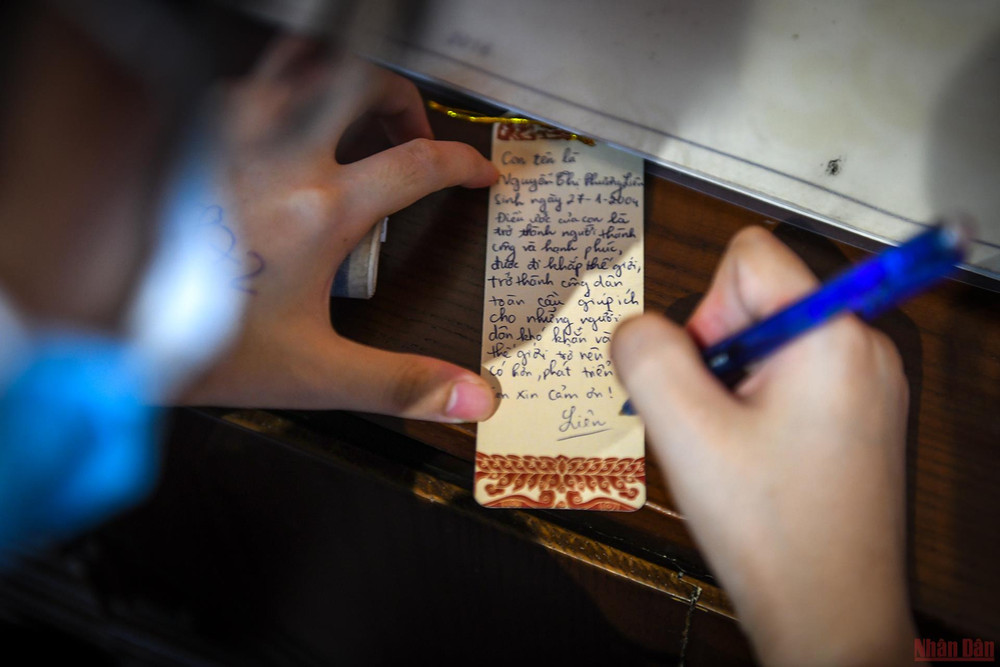 Con tên là
Nguyễn Thị Phương Liên
Sinh ngày 27-1-2004
Điều ước của con là
trở thành người thành
công và hạnh phúc,
được đi khắp thế giới,
trở thành công dân
toàn cầu giúp ích
cho những người
dân khó khăn và
thế giới trở nên
có hơn, phát triển
xin cảm ơn!
Liên
Nhân Dân